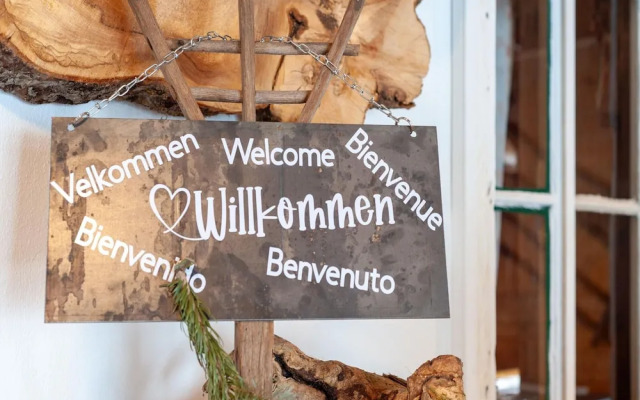 Velkommen
Welcome
Bienvenue
Willkommen
Bienvenido
Benvenuto